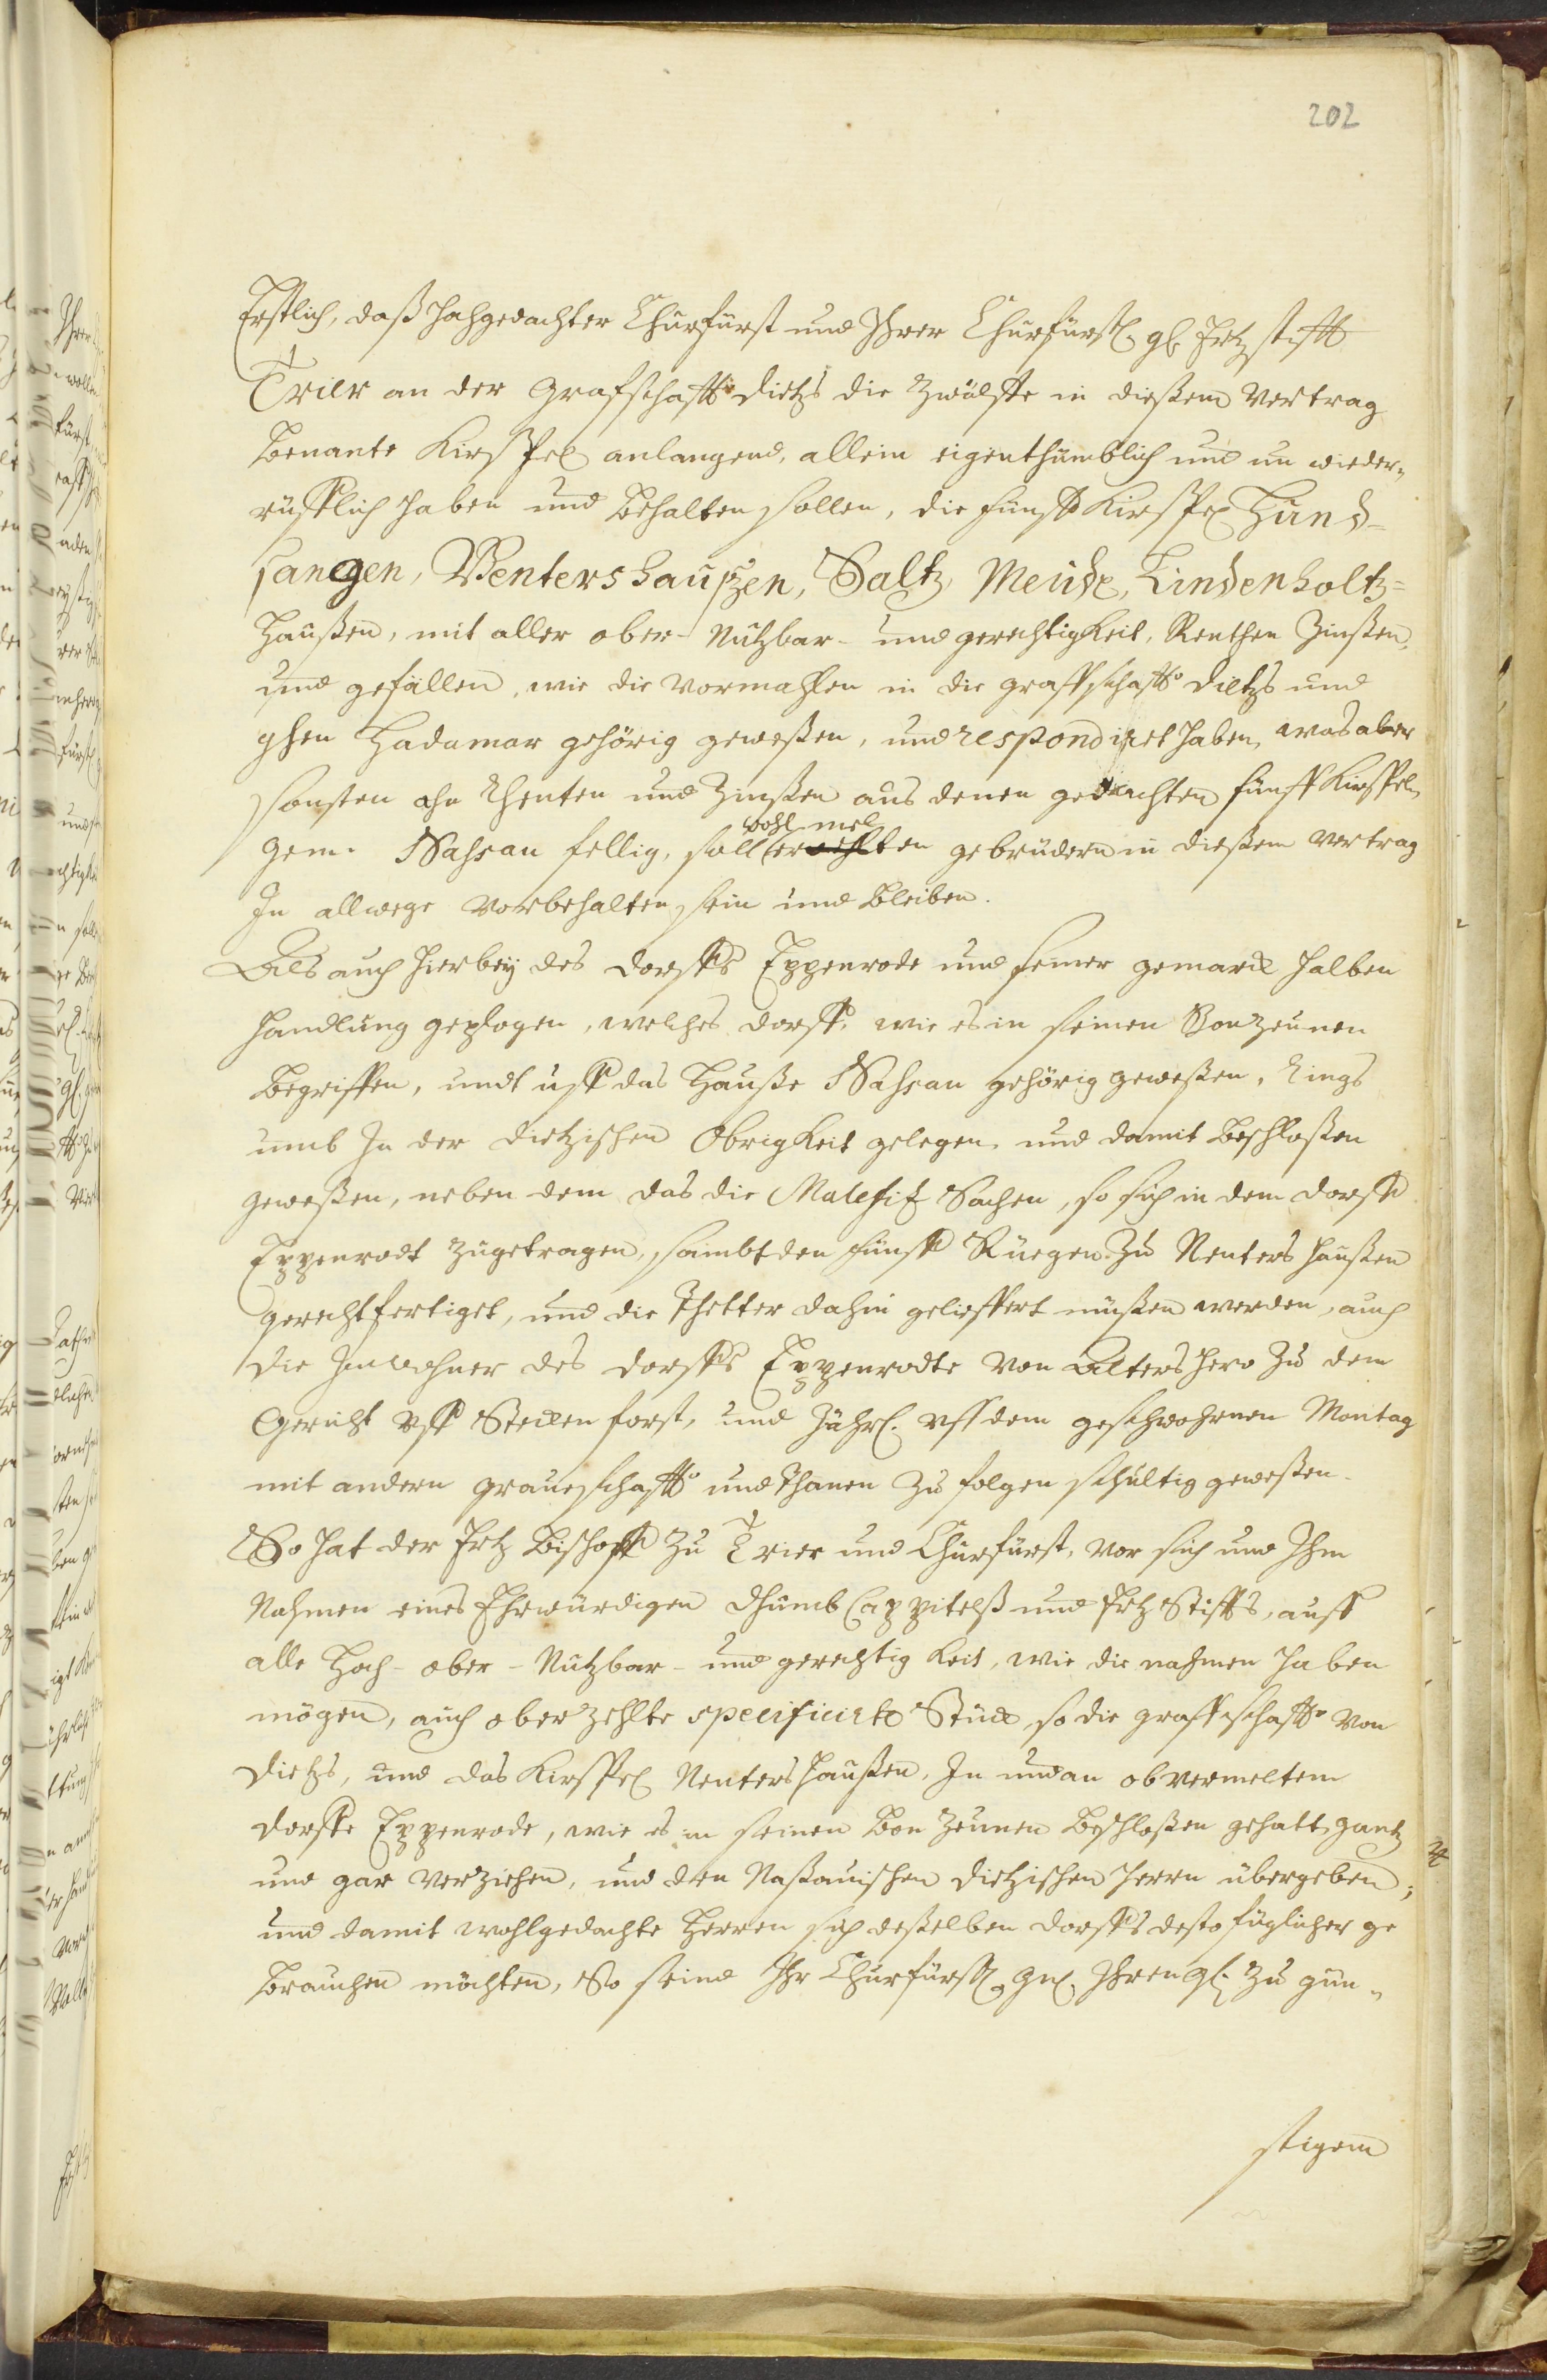 202
Erstlich, daß hochgedachter Churfürst und Ihrer Churfürstl. gl. Ertzstifft
Trier an der Grafschafft Dietzs die Zwölffte in dießem Vertrag
benante Kirspel anlangend, allein eigenthümblich und un wieder„
rüfflich haben und behalten sollen, die fünff Kirspel Hünd-
sangen, Nentershaußen, Saltz, Meüdt, Lindenholtz=
haußen, mit aller ober- Nutzbar- und gerechtigkeit, Renthen Zinßen,
und gefällen, wie die vormahlen in die graffschafft Dietzs und
ghen Hadamar gehörig geweßen, und respondiret haben, was aber
sonsten ahn Rhenten und Zinßen aus denen gedachten fünff Kirspeln
gem. Naßau fellig, soll wohl mel ermehlten gebrüdern in dießem Vertrag
In allwege vorbehalten sein und bleiben.
Als auch hierbey des dorffs Eppenrode und seiner gemarck halben
handlung geplogen, welches dorff, wie es in seinen Bonzeunen
begriffen, undt uff das Hauße Naßau gehörig geweßen, Rings
umb In der dietzischen Obrigkeit gelegen, und damit beschloßen
geweßen, neben dem das die Malefitz Sachen, so sich in dem dorff
Eppenrodt zugetragen, sambt den fünff Rüegen zu Nenters haußen
gerechtfertiget, und die Thetter dahin geliefert müßen werden, auch
die Inwohner des dorffs Eppenrodte von Alters hero zu dem
Gericht uff Recken forst, und Jährl. uff dem geschwohrnen Montag
mit andern graueschafft unthanen zu folgen schültig geweßen.
So hat der Ertz Bischoff zu Trier und Churfürst, vor sich und Ihm
Nahmen eines Ehrwürdigen dhumb Cappitelß und Ertz Stiffts, auff
alle Hoch- ober- Nützbar- und gerechtig keit, wie die nahmen haben
mögen, auch oberzehlte specificirte Stück, so die graffschafft von
Dietzs, und das Kirspel Nentershaußen, In und an obvermeltem
dorffe Eppenrode, wie es in seinen bon Zeunen beschloßen gehatt, gantz
und gar verziehen, und den Naßauischen dietzischen Herrn übergeben;
und damit wohlgedachte Herren sich deßelben dorffs desto füglicher ge
brauchen möchten, So seind Ihr Churfürstl. Gnl. Ihren gl. zu gün„
stigem